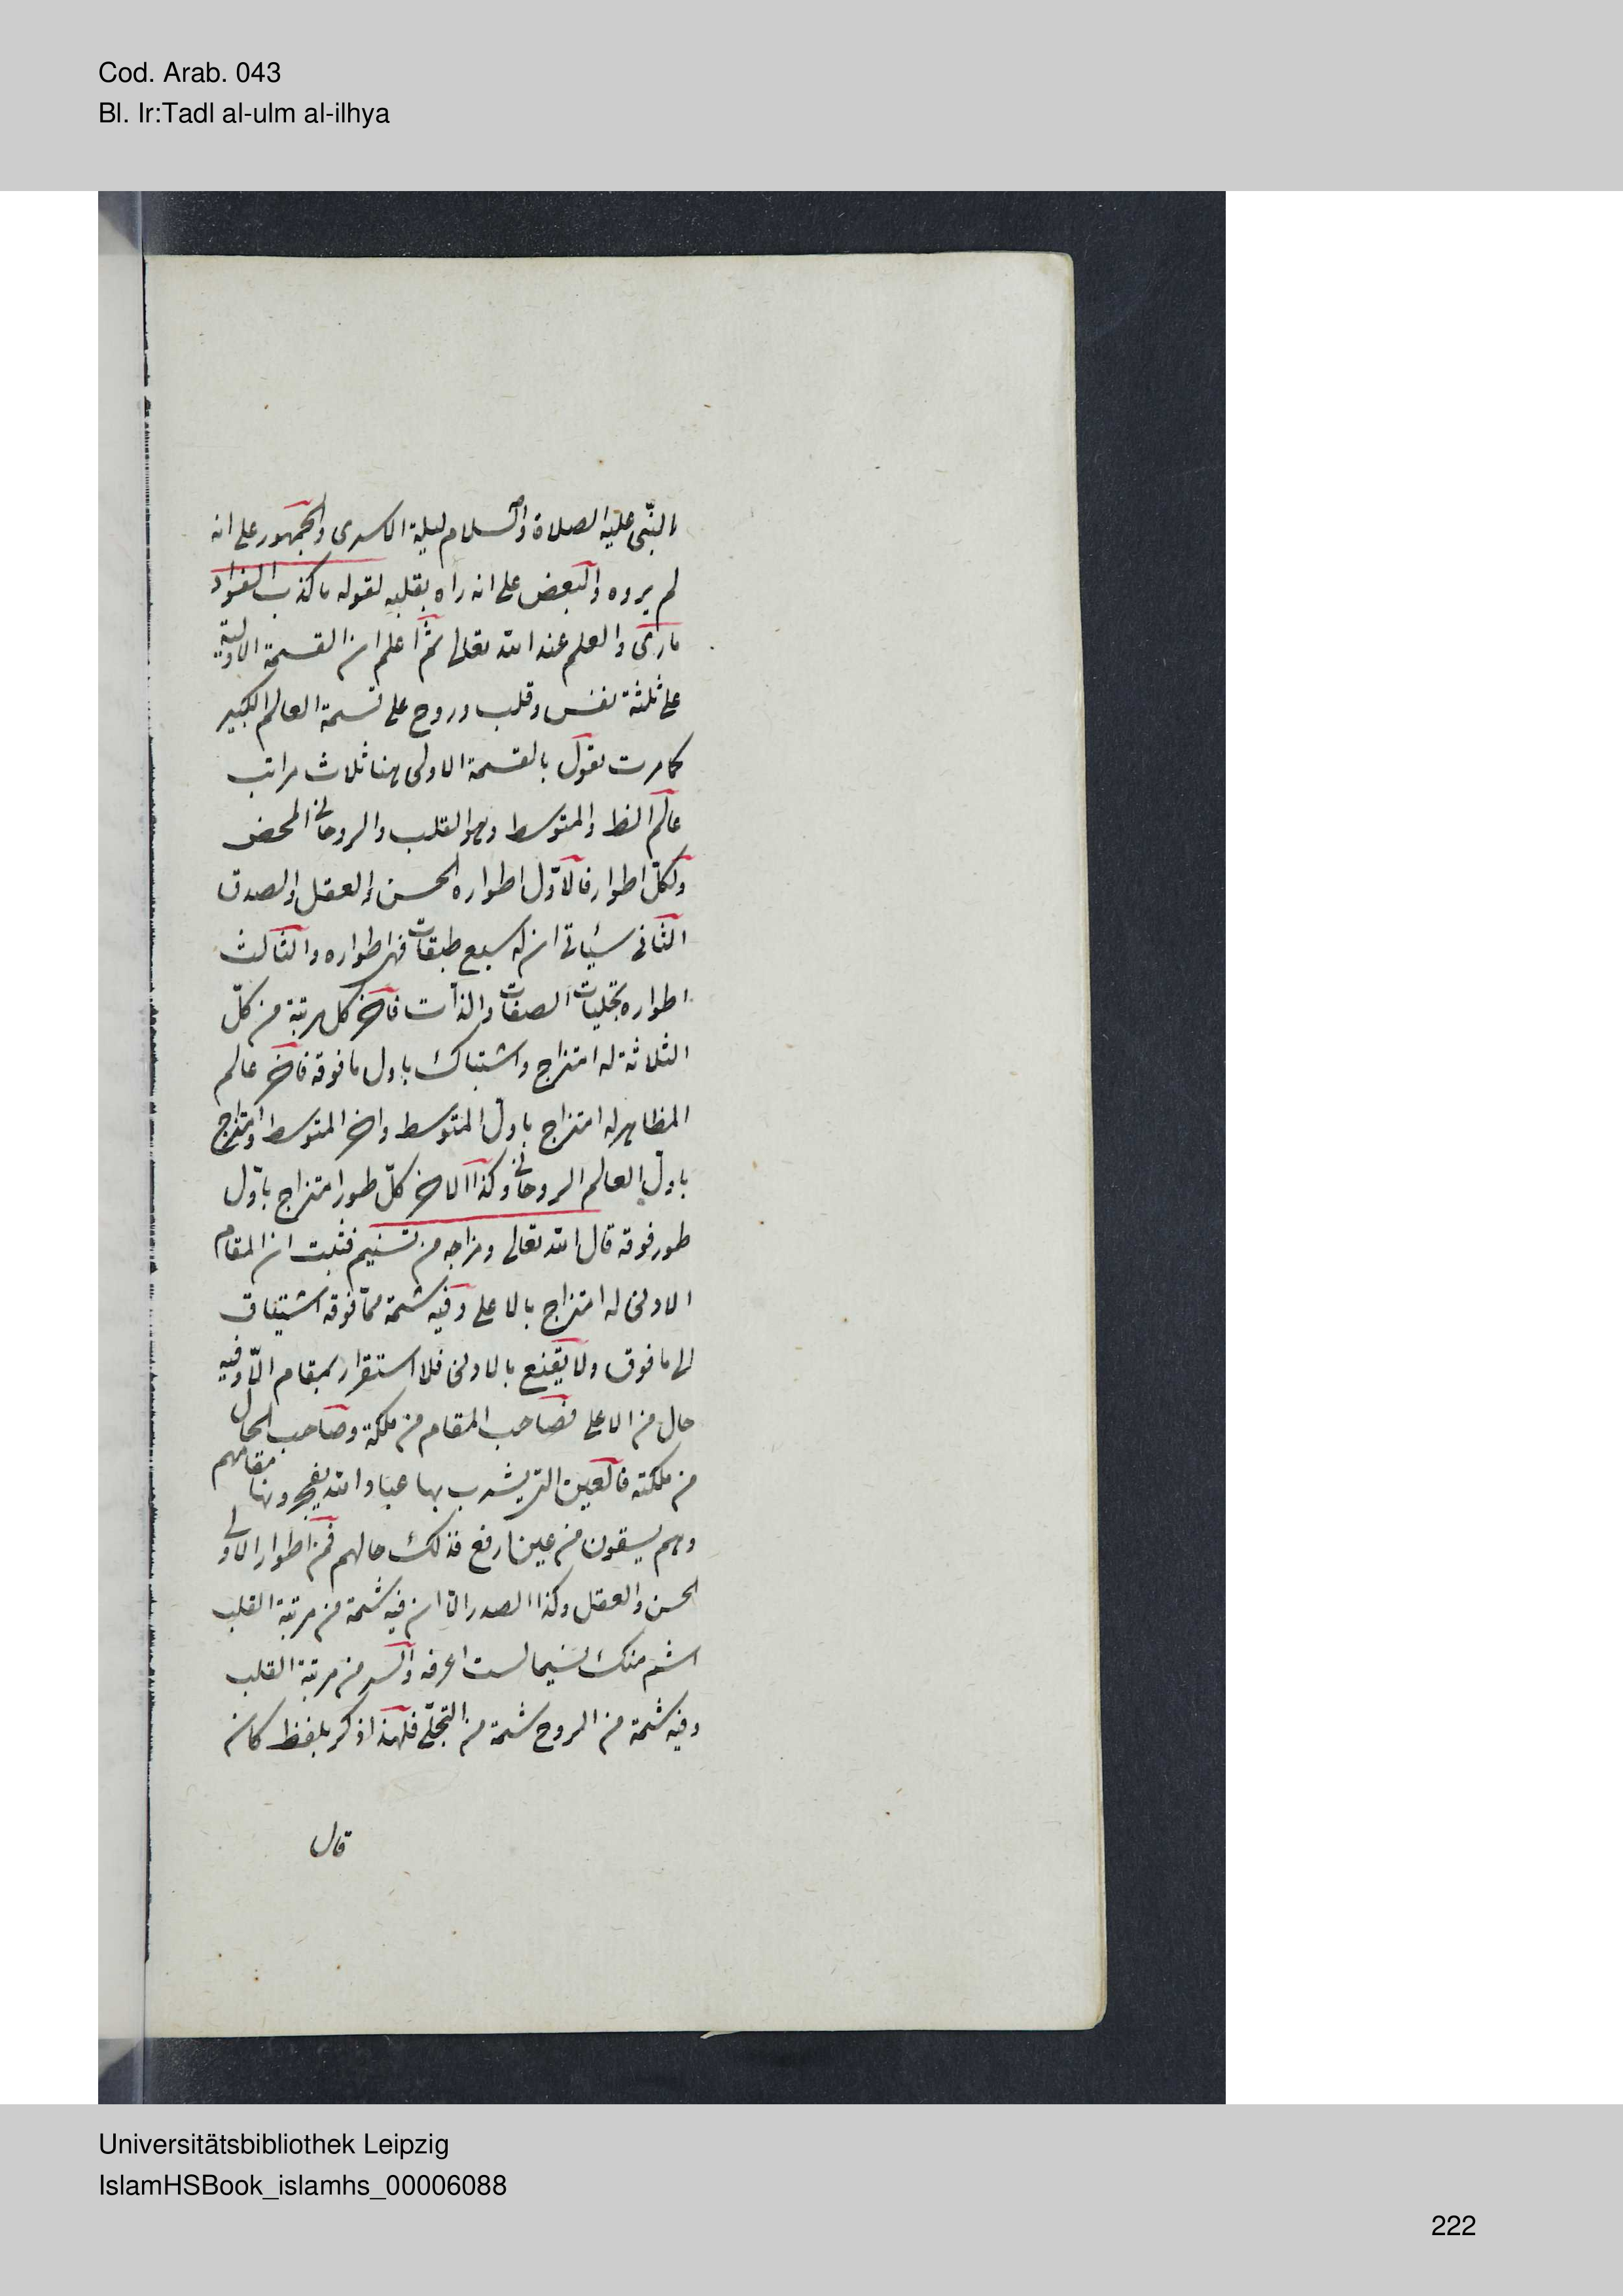 Cod. Arab. 043
Bl. Ir:Tadl al-ulm al-ilhya
النبّى عليه الصلاة والسلام ليلة الاسرى والجمهور على انه
لم يروه والبعض على انه راه بقلبه لقوله ما كذب الفواد
ما رأى والعلم عند الله تعالى ثم اعلم ان القسمة الاولية
على ثلثة نفس وقلب وروح على قسمة العالم الكبير
كما مرت نقول بالقسمة الاولى هنا ثلاث مراتب
عالم الظ والمتوسط وهو القلب والروحانى المحض
ولكلّ اطوار فالاوّل اطواره الحسن والعقل والصدق
الثانى سيأتى ان له سبع طبقات فهى اطواره والثالث
اطواره تجليات الصفات والذات فاخر كل مرتبة من كلّ
الثلاثة له امتزاج واشتباك باول ما فوقه فاخر عالم
المظاهر له امتزاج باول المتوسط واخر المتوسط امتزاج
باول العالم الروحانى وكذا الاخر كلّ طور امتزاج باوّل
طور فوقه قال الله تعالى ومزاجه من تسنيم فثبت ان المقام
الادنى له امتزاج بالاعلى وفيه شمة ممّا فوقه اشتياق
الى ما فوق ولا يقنع بالادنى فلا استقرار بمقام الّا وفيه
حال من الاعلى فصاحب المقام من ملكه وصاحب الحال
من ملكته فالعين التى يشرب بها عباد الله يفجرونها مقامهم
وهم يسقون من عين ارفع فذلك حالهم فمن اطوار الاولى
الحسن والعقل وكذا الصدر الا ان فيه شمة من مرتبة القلب
اشم منك نسيما لست اعرفه والسر من مرتبة القلب
وفيه شمة من الروح شمة من التجلّى فلهذا ذكر بلفظ كان
قال
Universitätsbibliothek Leipzig
IslamHSBook_islamhs_00006088
222